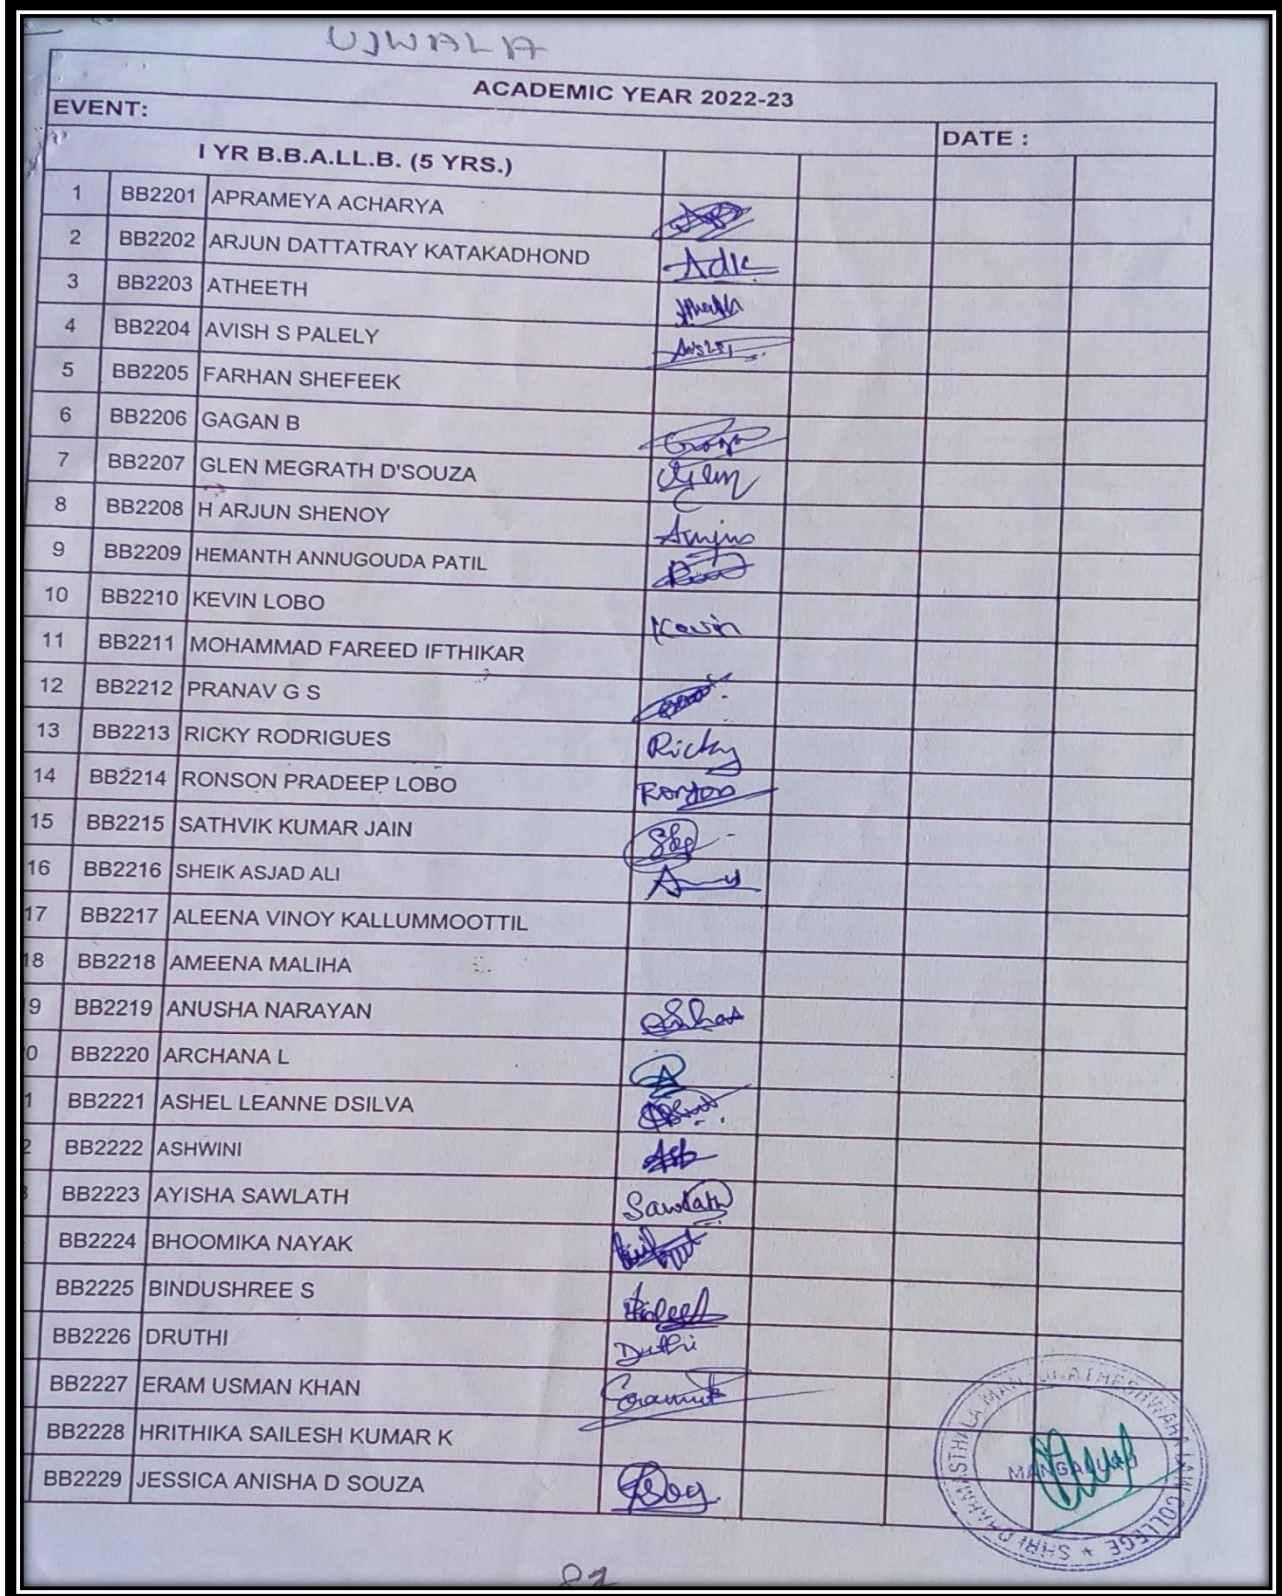 UJWALA
ACADEMIC YEAR 2022-23
EVENT:
DATE :
I YR B.B.A.LL.B. (5 YRS.)
1 BB2201 APRAMEYA ACHARYA
2 BB2202 ARJUN DATTATRAY KATAKADHOND Adk
3 BB2203 ATHEETH
4 BB2204 AVISH S PALELY
5 BB2205 FARHAN SHEFEEK
6 BB2206 GAGAN B
7 BB2207 GLEN MEGRATH D'SOUZA Glen
8 BB2208 H ARJUN SHENOY Arjun
9 BB2209 HEMANTH ANNUGOUDA PATIL
10 BB2210 KEVIN LOBO Kevin
11 BB2211 MOHAMMAD FAREED IFTHIKAR
12 BB2212 PRANAV G S
13 BB2213 RICKY RODRIGUES Ricky
14 BB2214 RONSON PRADEEP LOBO
15 BB2215 SATHVIK KUMAR JAIN
16 BB2216 SHEIK ASJAD ALI
17 BB2217 ALEENA VINOY KALLUMMOOTTIL
18 BB2218 AMEENA MALIHA
9 BB2219 ANUSHA NARAYAN
0 BB2220 ARCHANA L
1 BB2221 ASHEL LEANNE DSILVA
2 BB2222 ASHWINI
BB2223 AYISHA SAWLATH Sawlath
BB2224 BHOOMIKA NAYAK
BB2225 BINDUSHREE S
BB2226 DRUTHI Druthi
BB2227 ERAM USMAN KHAN
BB2228 HRITHIKA SAILESH KUMAR K
BB2229 JESSICA ANISHA D SOUZA
SHRI DHARMASTHALA MANJUNATHESHWARA LAW COLLEGE
MANGALURU